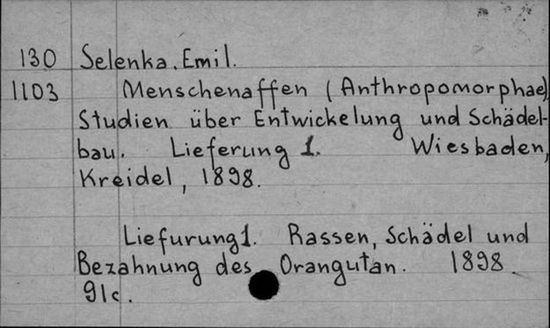 130 Selenka, Emil.
1103 Menschenaffen (Anthropomorphae)
Studien über Entwickelung und Schädel-
bau. Lieferung 1. Wiesbaden,
Kreidel, 1898.
Liefurung 1. Rassen, Schädel und
Bezahnung des Orangutan. 1898.
91c.